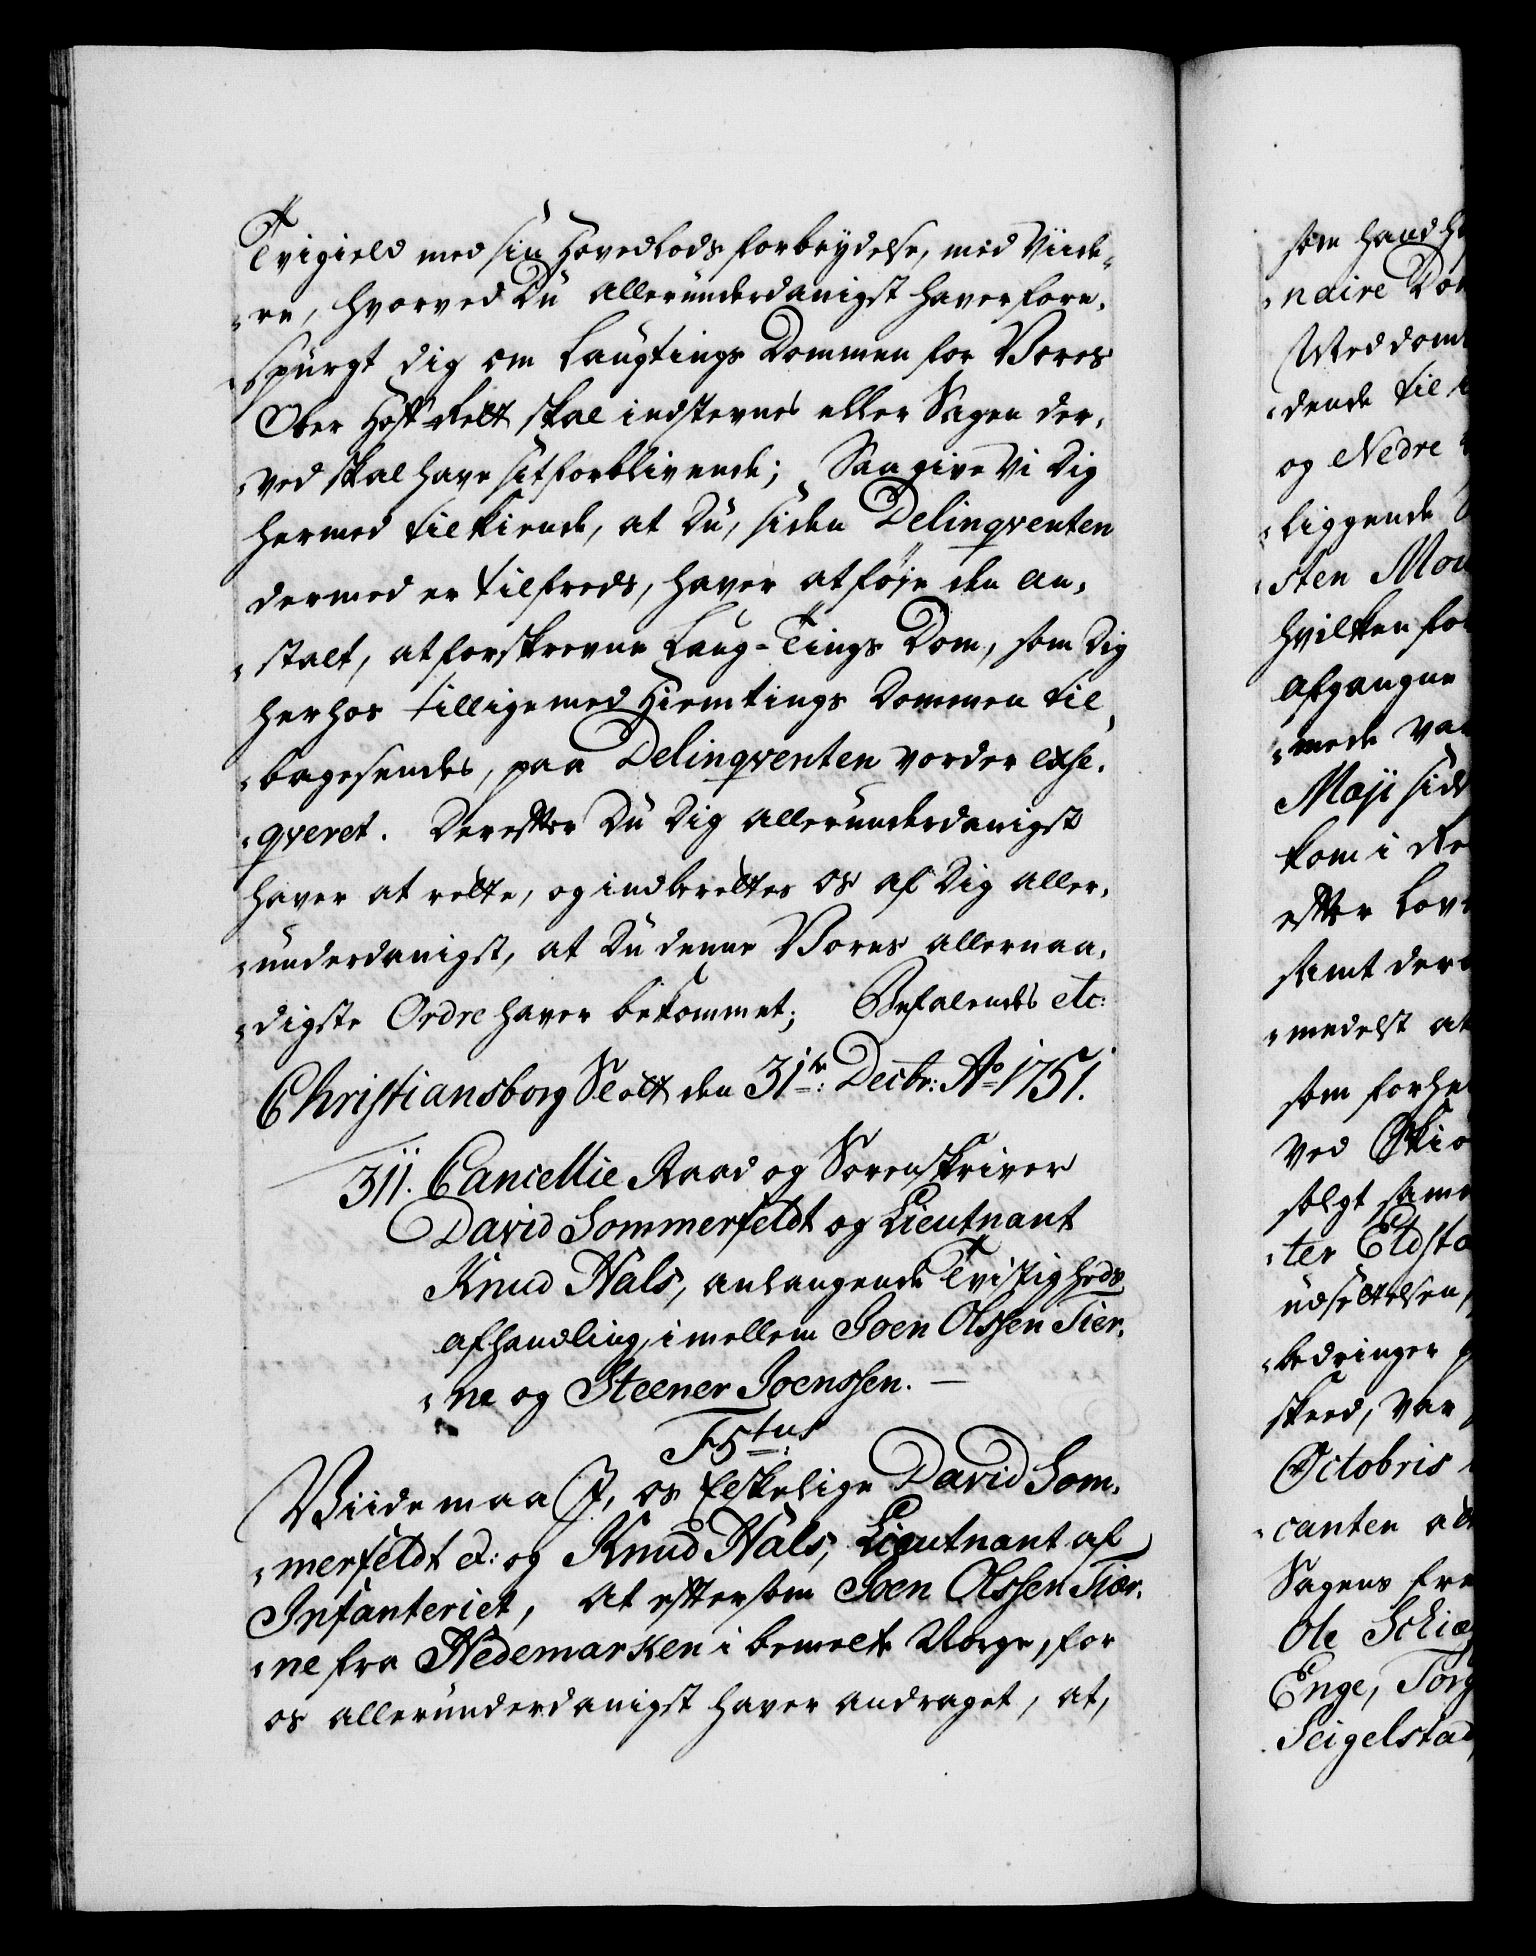 Tvigield med sin Hovedlods forbrydelse, med Viide-
-re, hvorved Du allerunderdanigst haver fore-
-spurgt dig om Laugtings Dommen for Vores
Ober Hoff-Rett skal indstevnes eller Sagen der-
-ved skal have sit forblivende; Saa give Vi Dig
hermed tilkiende, at Du, siden Delinqventen
dermed er tilfreds, haver at føje den An-
-stalt, at forskrevne Laug-Tings Dom, som Dig
herhos tilligemed Hiemtings Dommen til-
-bagesendes, paa Delinqventen vorder exse-
-qveret. Derefter Du Dig allerunderdanigst
haver at rette, og indberettes os af Dig aller-
-underdanigst, at Du denne Vores allernaa-
-digste Ordre haver bekommet; Befalendes etc:
Christiansborg Slott den 31te: Decbr: Ao 1751.
311. Cancellie Raad og Sorenskriver
David Sommerfeldt og Lieutnant
Knud Hals, anlangende Tvistigheds
afhandling, imellem Joen Olssen Tier-
-ne og Steener Joenssen. —
F5tus
Viide maa I, os Elskelige David Som-
-merfeldt etc: og Knud Hals, Lieutnant af
Infanteriet, At eftersom Joen Olssen Tier-
-ne fra Hedemarken i bemelte Norge, for
os allerunderdanigst haver andraget, at,
som hand
-naire
Meddom
-dende til
og Nedre
liggende
-sten
hvilken
afgangne
-mede
Maji sids
kom i
efter Lov
samt der
-medelst at
som forhe
ved
solgt sam
-ter Eldsta
udsettelsen,
-bedringer
skeed, var
Octobris
-canten
Sagens
Ole Schiæ
Enge, Torg
Seigelstad